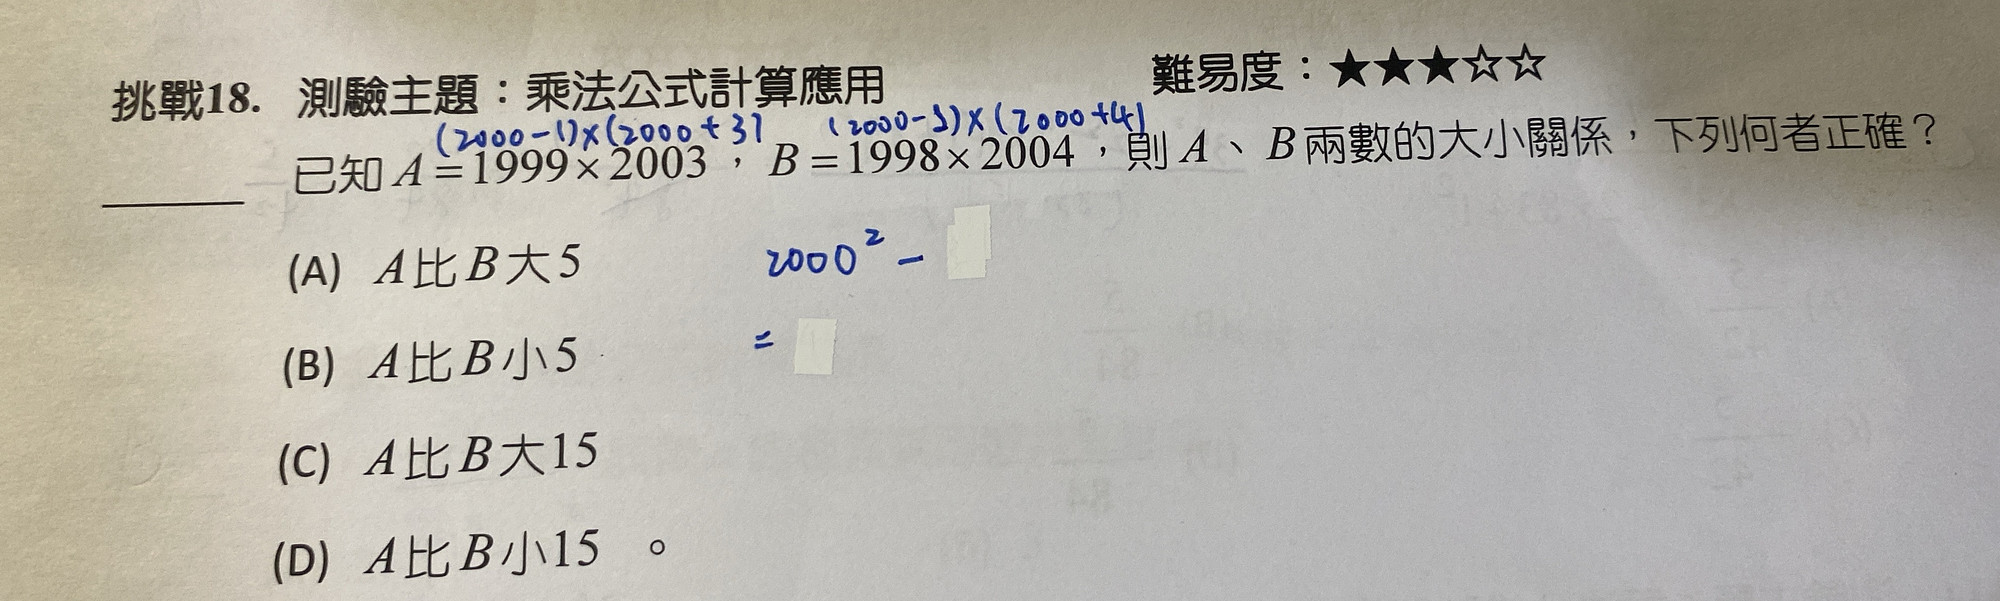 挑戰18. 測驗主題：乘法公式計算應用 難易度：★★★☆☆
(2000-1)×(2000+3) (2000-2)×(2000+4)
已知A=1999×2003，B=1998×2004，則A、B兩數的大小關係，下列何者正確？
(A) A比B大5
2000² -
(B) A比B小5
=
(C) A比B大15
(D) A比B小15 。